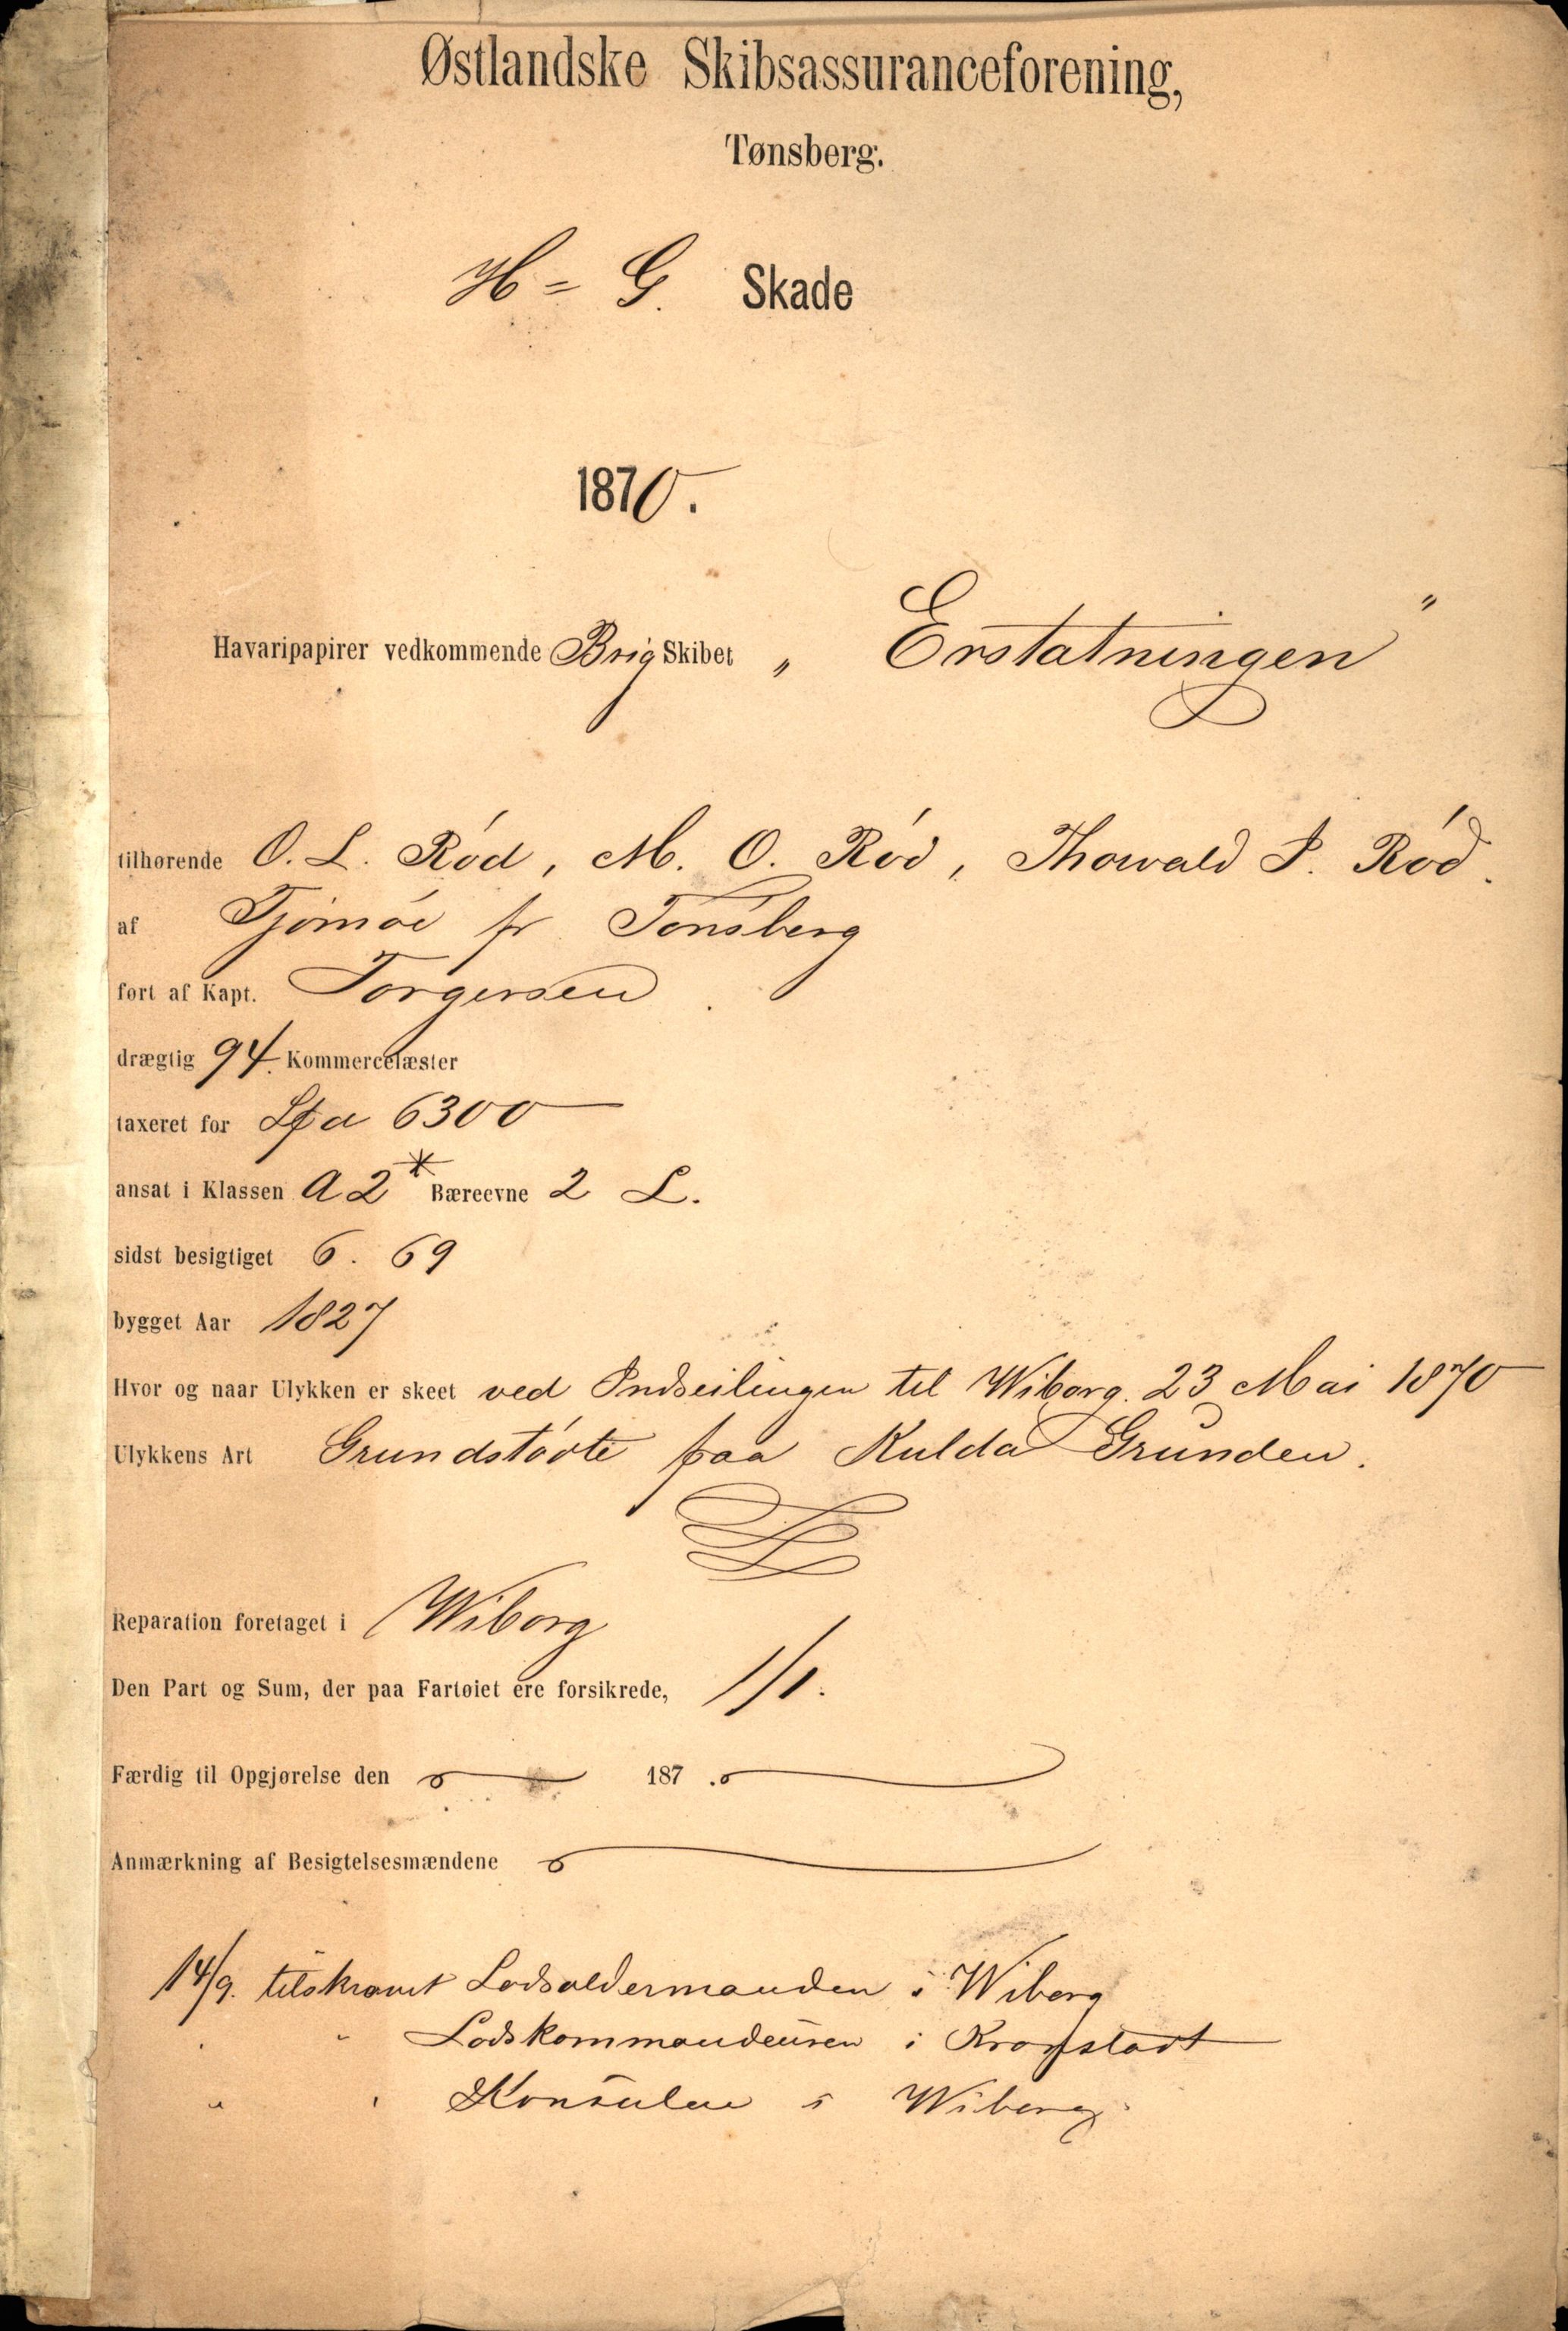 Østlandske Skibsassuranceforening,
Tønsberg.
H = G. Skade
1870.
Havaripapirer vedkommende Brig Skibet „ Erstatningen "
tilhørende O. L. Ród, M. O. Ród, Thorvald I. Ród.
af Tjömöe pr Tönsberg
ført af Kapt. Torgersen.
drægtig 94. Kommercelæster
taxeret for 6300
ansat i Klassen A 2* Bæreevne 2 L.
sidst besigtiget 6. 69
bygget Aar 1827
Hvor og naar Ulykken er skeet ved Indseilingen til Wiborg. 23 Mai 1870
Ulykkens Art Grundstódte paa Kulda Grunden.
Reparation foretaget i Wiborg
Den Part og Sum, der paa Fartøiet ere forsikrede, 1/1.
Færdig til Opgjørelse den 187
Anmærkning af Besigtelsesmændene
14/9. tilskrevet Lodsoldermanden i Wiborg
" Lodskommandeuren i Kronstadt
" " Konsulen i Wiborg.